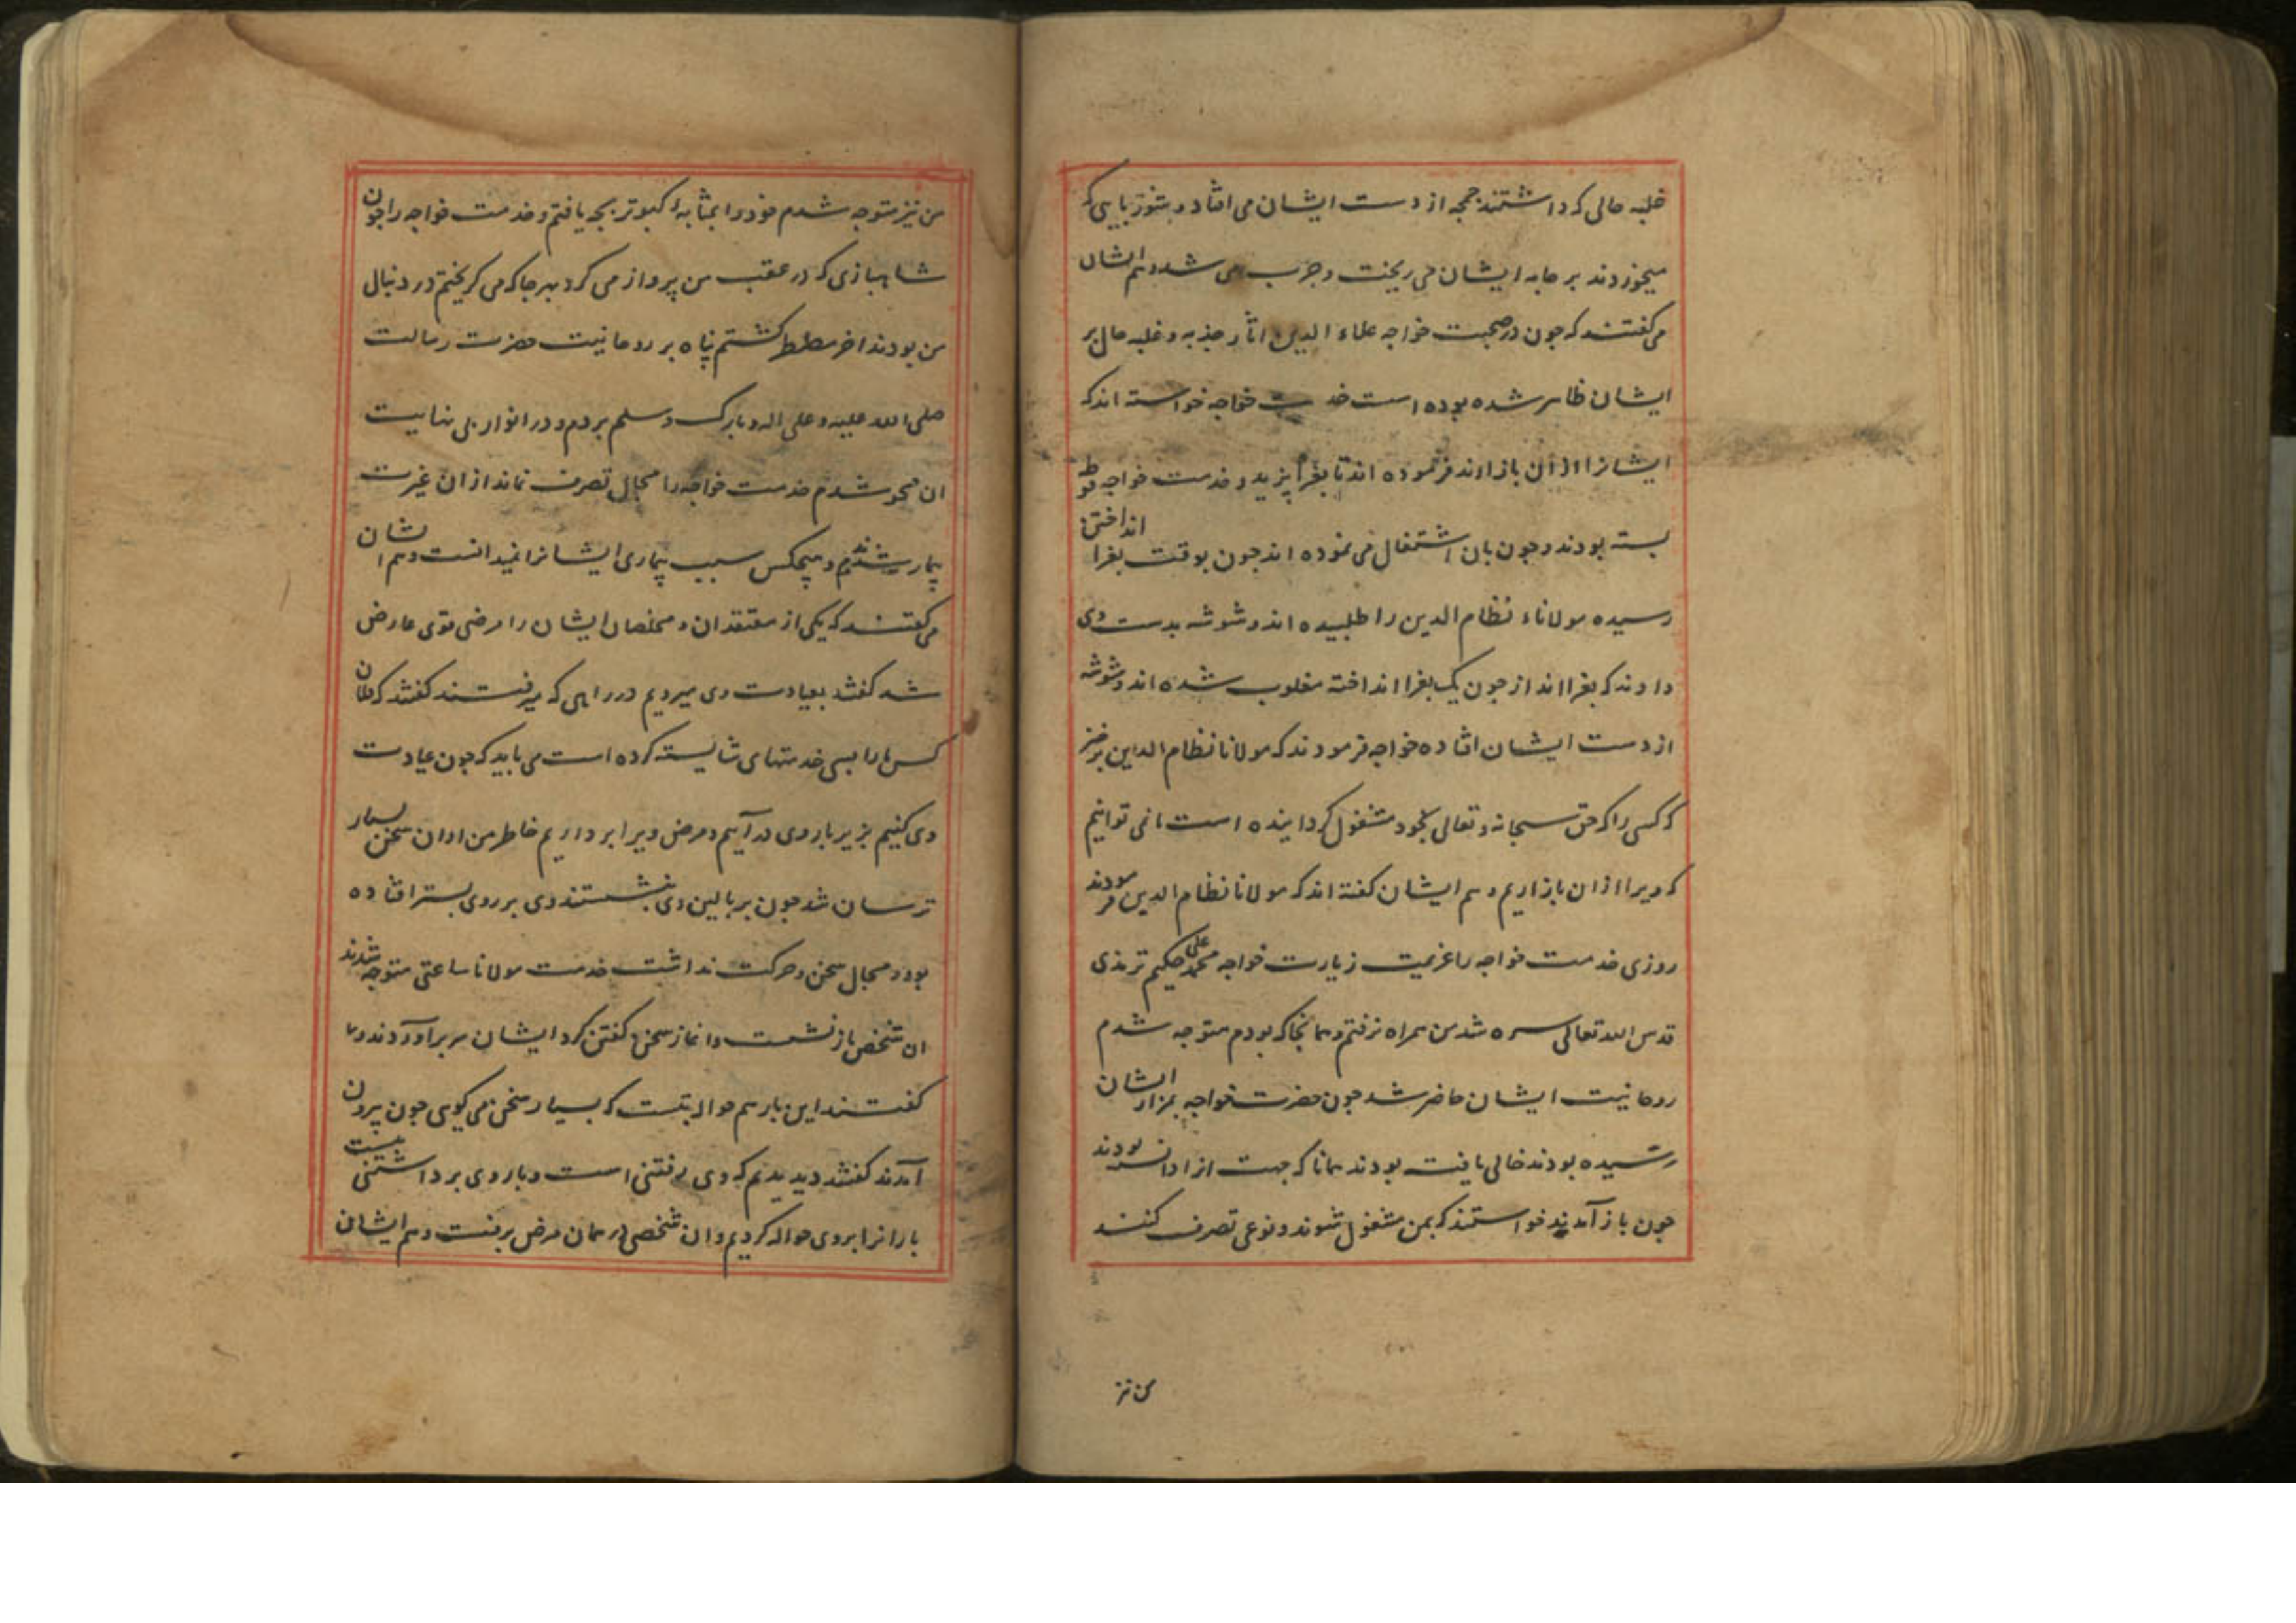 غلبه حالی که داشتند جمجه از دست ایشان می افتاد و شوربایی که
میخوردند بر جامه ایشان می ریخت و چرب می شد و هم ایشان
می گفتند که چون در صحبت خواجه علاء الدین اثار جذبه و غلبه حال بر
ایشان ظاهر شده بوده است خدمت خواجه خواسته اند که
ایشانرا ازان باز ارند فرموده اند تا بغرا پزید و خدمت خواجه فوطه
بسته بودند و چون بان اشتغال می نموده اند چون بوقت بغرا انداختن
رسیده مولاناء نظام الدین را طلبیده اند و شوشه بدست وی
دادند که بغرا انداز چون یک بغرا انداخته مغلوب شده اند و شوشه
از دست ایشان افتاده خواجه فرمودند که مولانا نظام الدین برخیز
که کسی را که حق سبحانه و تعالی بخود مشغول گردانیده است ما نمی توانیم
که ویرا ازان باز اریم و هم ایشان گفته اند که مولانا نظام الدین فرمودند
روزی خدمت خواجه را عزیمت زیارت خواجه محمد علی حکیم ترمذی
قدس الله تعالی سره شد من همراه نرفتم و همانجا که بودم متوجه شدم
روحانیت ایشان حاضر شد چون حضرت خواجه بمزار ایشان
رسیده بودند خالی یافت بودند همانا که جهت انرا دانسته بودند
چون باز آمدند خواستند که بمن مشغول شوند و نوعی تصرف کنند
من نیز
من نیز متوجه شدم خود را بمثابه کبوتر بچه یافتم و خدمت خواجه را چون
شاهبازی که در عقب من پرواز می کرد بهر جا که می گریختم در دنبال
من بودند اخر مضطر گشتم پناه بر روحانیت حضرت رسالت
صلی الله علیه و علی اله و بارک و سلم بردم و در انوار بی نهایت
ان محو شدم خدمت خواجه را مجال تصرف نماند ازان غیرت
بیمار شدند و هیچکس سبب بیماری ایشانرا نمیدانست و هم ایشان
می گفتند که یکی از معتقدان و مخلصان ایشان را مرضی قوی عارض
شد گفتند بعیادت وی میرویم در راهی که میرفتند گفتند که فلان
کس ما را بسی خدمتهای شایسته کرده است می باید که چون عیادت
وی کنیم بزیر بار وی در آییم و مرض ویرا برداریم خاطر من ازان سخن بسیار
ترسان شد چون بر بالین وی بنشستند وی بر روی بستر افتاده
بود و مجال سخن و حرکت نداشت خدمت مولانا ساعتی متوجه شدند
ان شخص باز نشست و اغاز سخن گفتن کرد ایشان سر براوردند و ما
گفتند این بار هم حواله بتست که بسیار سخن می گویی چون بیرون
آمدند گفتند دیدیم که وی رفتنی است و بار وی برداشتنی نیست
بار انرا بروی حواله کردیم و ان شخص در همان مرض برفت و هم ایشان